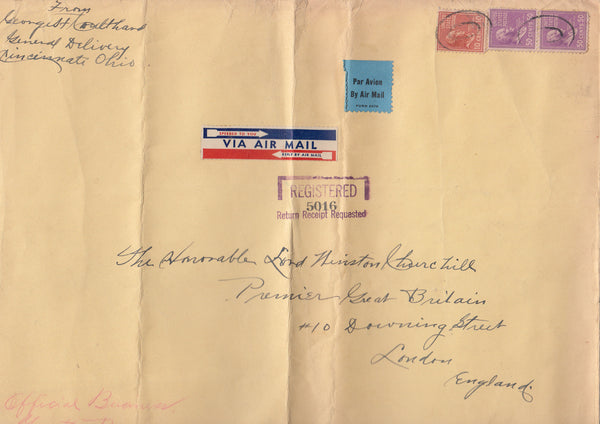 From
George H Coulthard
General Delivery
Cincinnati Ohio.
10 CENTS
50 CENTS 50
50 CENTS 50
Par Avion
By Air Mail
SPEEDED TO YOU
VIA AIR MAIL
REPLY BY AIR MAIL
REGISTERED
5016
Return Receipt Requested
The Honorable Lord Winston Churchill
Premier Great Britain
#10 Downing Street
London
England.
Official Business.